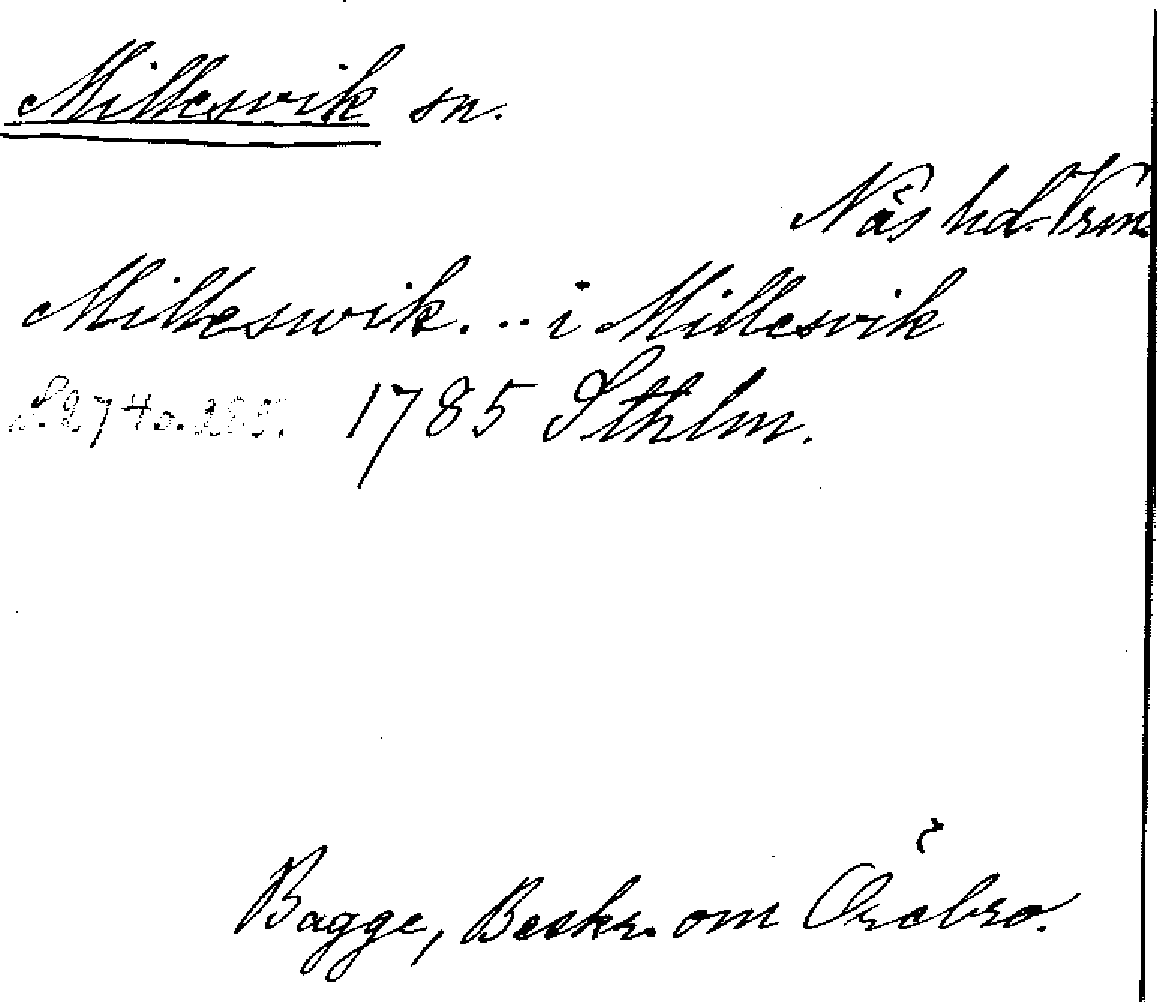 Millesvik sn.
Näs hd. Vrm.
Milleswik. .. i Millesvik
S. 274 o. 1785 Sthlm.
Bagge, Beskr. om Örebro.